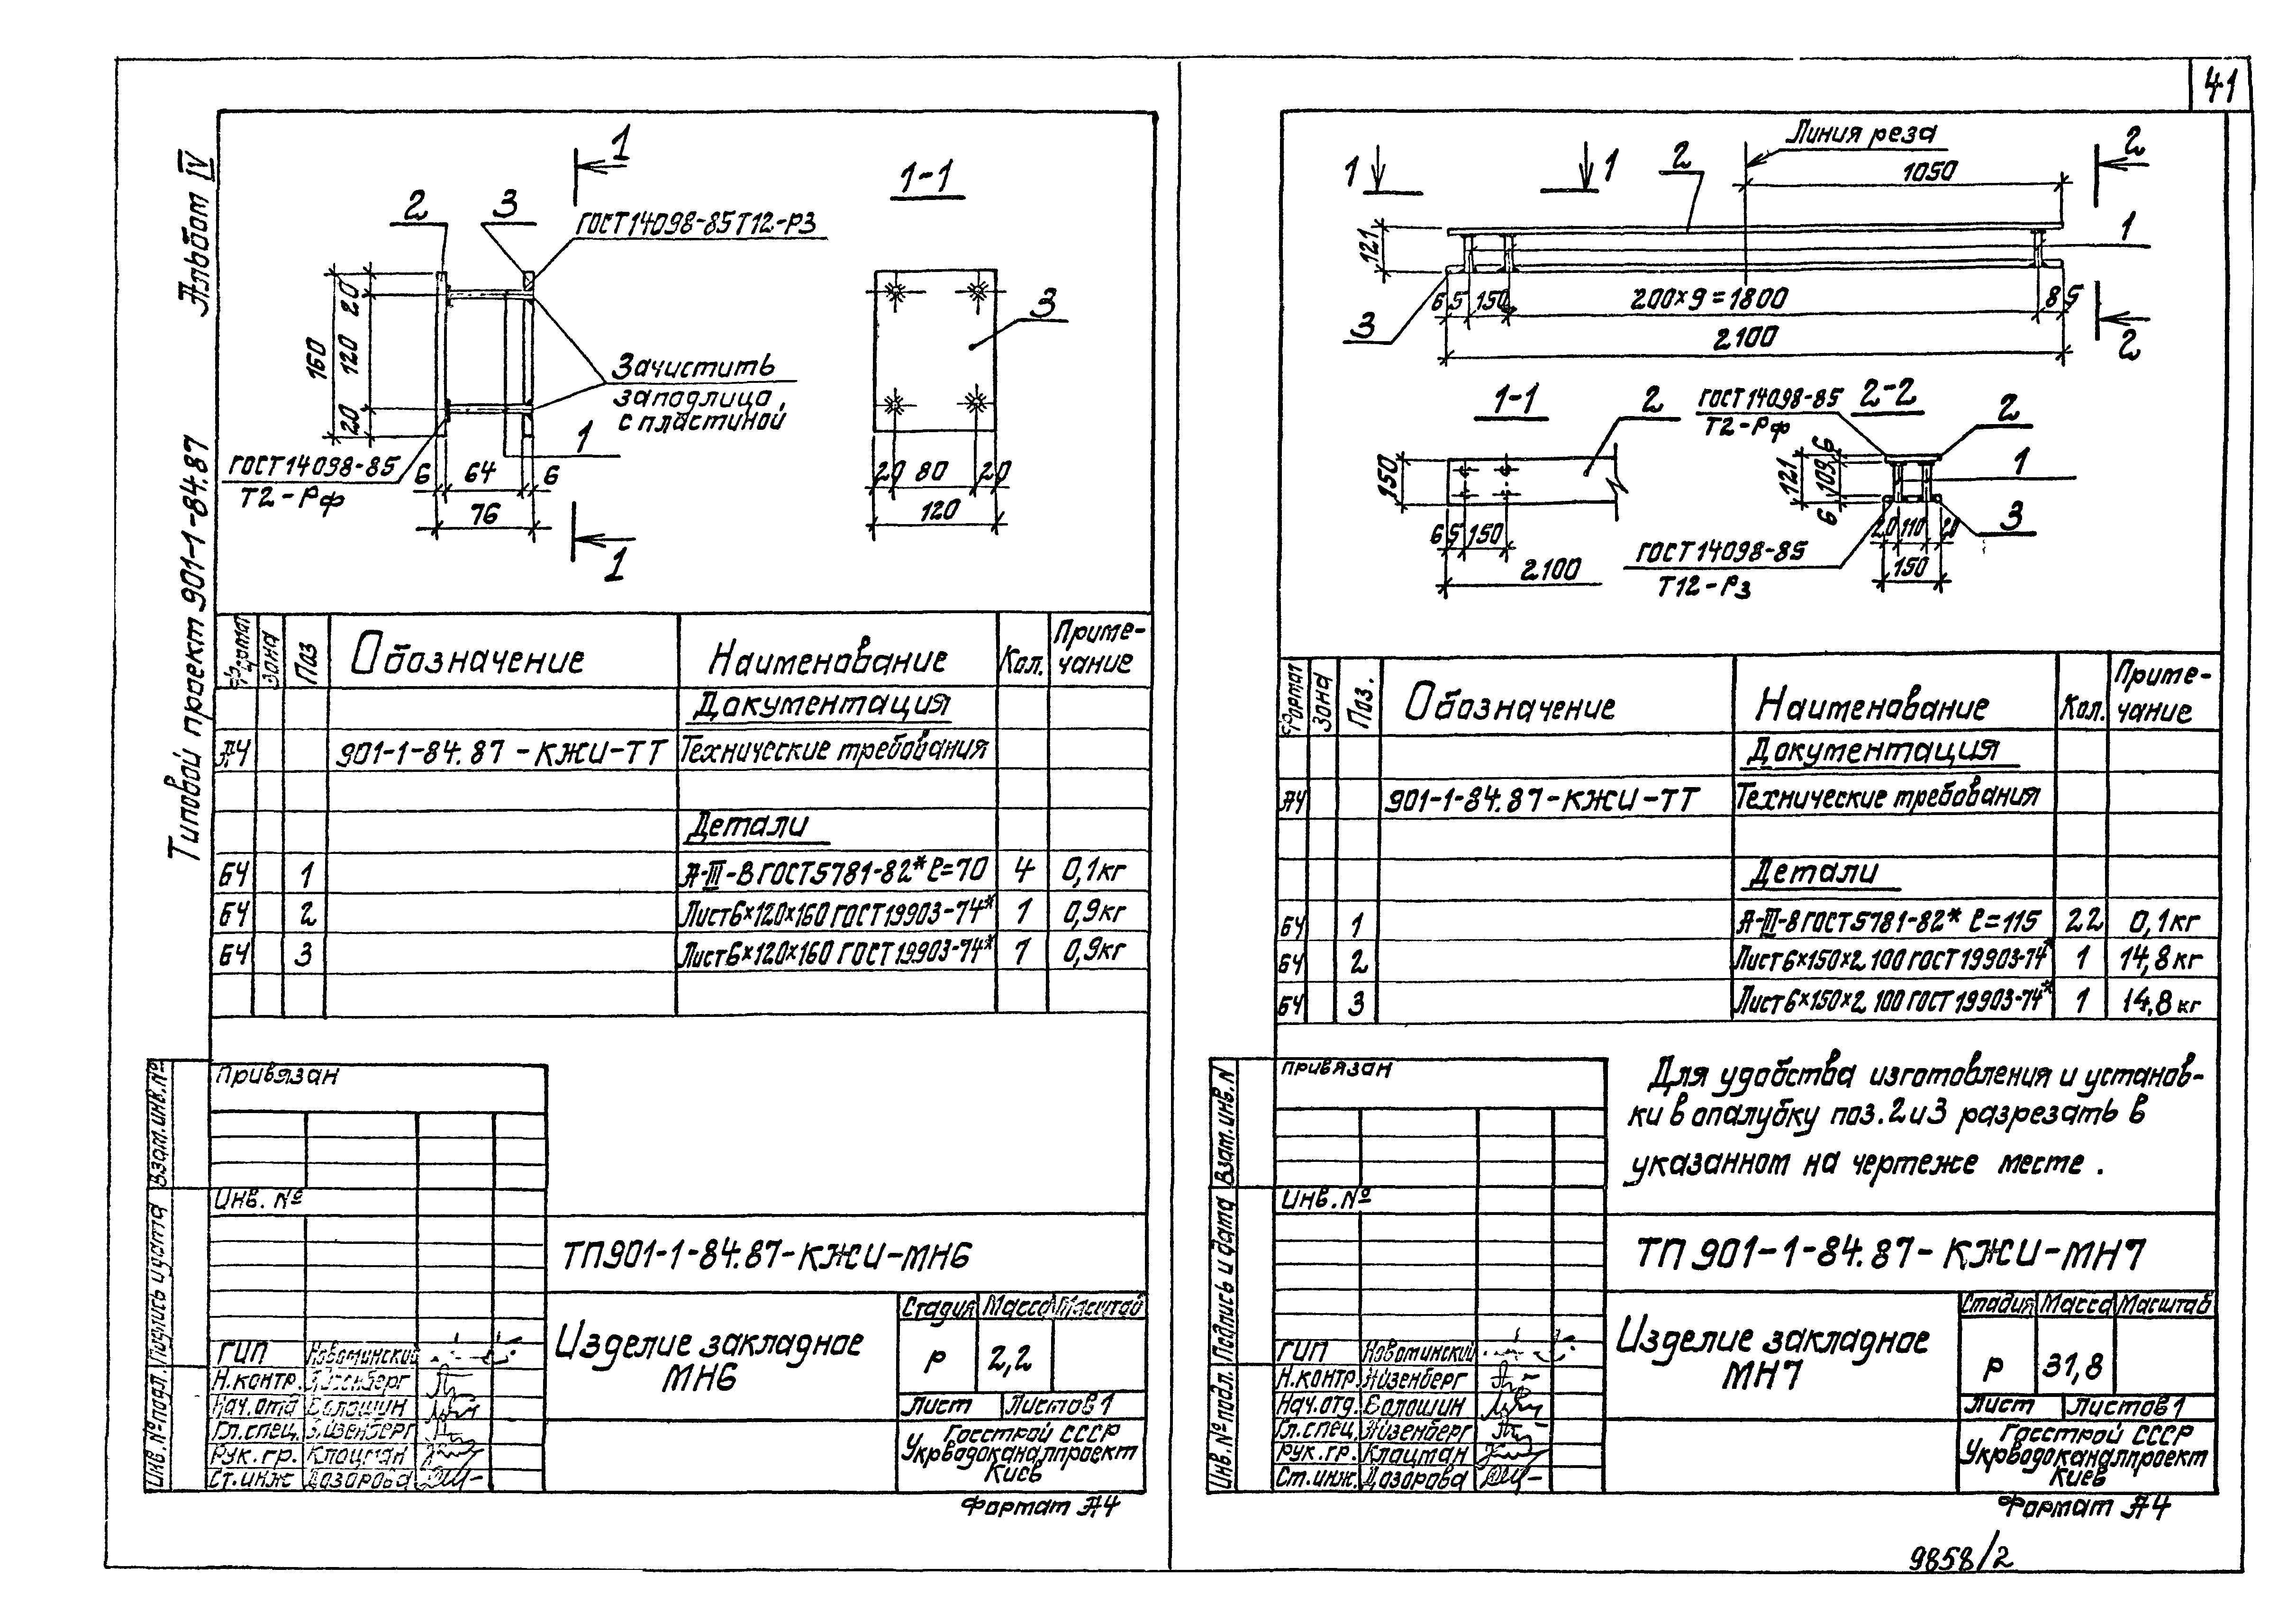 41
Альбом IV
Типовой проект 901-1-84.87
1
1-1
2
3
ГОСТ 14098-85 Т12-Рз
160
20
120
20
3
Зачистить
заподлицо
с пластиной
1
ГОСТ 14098-85
Т2-Рф
6
64
6
76
20
80
20
120
1
Формат
Зона
Поз
Обозначение
Наименование
Кол.
Приме-
чание
Документация
А4
901-1-84.87-КЖИ-ТТ
Технические требования
Детали
БЧ 1 А-III-8 ГОСТ 5781-82* ℓ=70 4 0,1кг
БЧ 2 Лист 6×120×160 ГОСТ 19903-74* 1 0,9кг
БЧ 3 Лист 6×120×160 ГОСТ 19903-74* 1 0,9кг
Привязан
Инв. №
Взам.инв.№
Подпись и дата
Инв.№ подл.
ТП 901-1-84.87-КЖИ-МН6
Стадия Масса Масштаб
Изделие закладное
МН6
Р 2,2
Лист Листов 1
Госстрой СССР
Укрводоканалпроект
Киев
ГИП Новоминский
Н.контр. Эйзенберг
Нач.отд Волошин
Гл.спец. Эйзенберг
Рук.гр. Клацман
Ст.инж
Формат А4
Линия реза
1
1
2
2
1050
121
1
6 5
150
200×9=1800
8 5
3
2100
2
1-1
2
ГОСТ 14098-85
Т2-Рф
2-2
2
150
6 5
150
2100
121
6
109
6
1
3
20
110
20
150
ГОСТ 14098-85
Т12-Рз
Формат
Зона
Поз.
Обозначение
Наименование
Кол.
Приме-
чание
Документация
А4
901-1-84.87-КЖИ-ТТ
Технические требования
Детали
БЧ 1 А-III-8 ГОСТ 5781-82* ℓ=115 22 0,1кг
БЧ 2 Лист 6×150×2100 ГОСТ 19903-74* 1 14,8кг
БЧ 3 Лист 6×150×2100 ГОСТ 19903-74* 1 14,8кг
Для удобства изготовления и установ-
ки в опалубку поз.2 и 3 разрезать в
указанном на чертеже месте.
Привязан
Инв. №
Взам.инв.N
Подпись и дата
Инв.№ подл.
ТП 901-1-84.87-КЖИ-МН7
Стадия Масса Масштаб
Изделие закладное
МН7
Р 31,8
Лист Листов 1
Госстрой СССР
Укрводоканалпроект
Киев
ГИП Новоминский
Н.контр. Эйзенберг
Нач.отд. Волошин
Гл.спец. Эйзенберг
Рук.гр. Клацман
Ст.инж.
Формат А4
9858/2